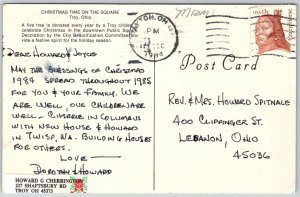 CHRISTMAS TIME ON THE SQUARE
Troy, Ohio
A live tree is donated every year by a Troy citizen
celebrate Christmas in the downtown Public Square
Decoration by the City Beautification Committee
vide a festive spirit for the season.
DAYTON, OH
PM
DEC
1984
Mom
USA 13c
Crazy Horse
DEAR HOWARD & JOYCE
MAY THE BLESSINGS OF CHRISTMAS
1984 SPREAD THROUGHOUT 1985
FOR YOU & YOUR FAMILY. WE
ARE WELL, OUR CHILDREN ARE
WELL – CHERRIE IN COLUMBUS
WITH NEW HOUSE & HOWARD
IN TWISP, WA. BUILDING HOUSES
FOR OTHERS.
LOVE –
DOROTHY & HOWARD
HOWARD G CHERRINGTON
237 SHAFTSBURY RD
TROY OH 45373
Post Card
REV. & MRS. HOWARD SPITNALE
400 CLIPPINGER ST.
LEBANON, OHIO
45036